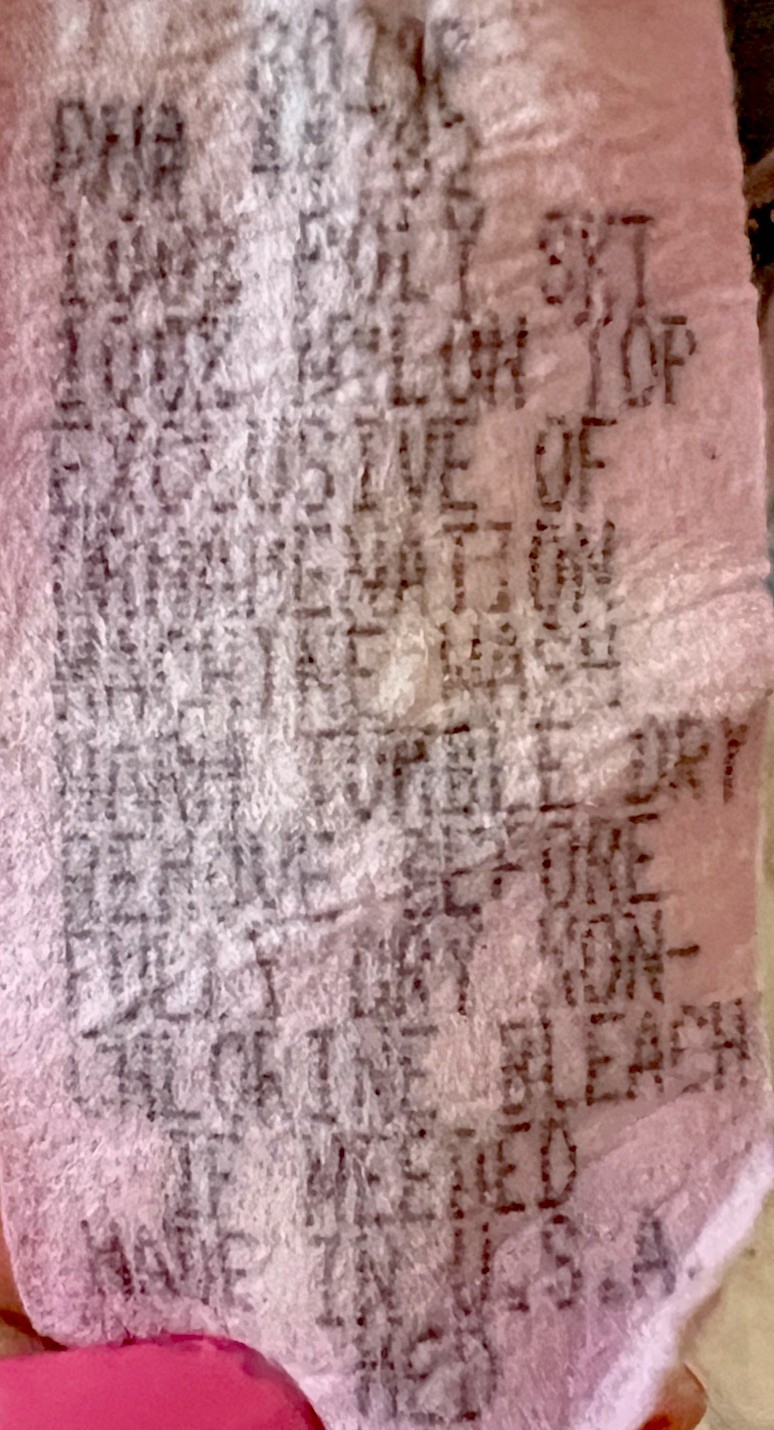 100% POLY SKT
100% NYLON TOP
EXCLUSIVE OF
ORNAMENTATION
MACHINE WASH
WARM TUMBLE DRY
REMOVE BEFORE
FULLY DRY NON-
CHLORINE BLEACH
IF NEEDED
MADE IN U.S.A.